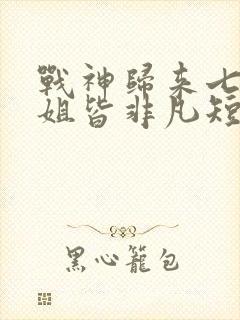 戰神歸来七
姐皆非凡短
黑心籠包